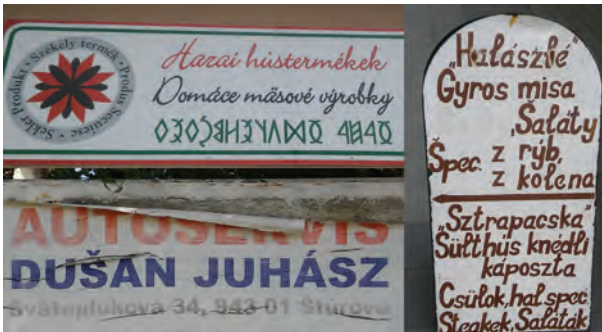 Székely termék • Produs Secuiesc • Sekler Produkt •
Hazai hústermékek
Domáce mäsové výrobky
AUTOSERVIS
DUŠAN JUHÁSZ
Svätoplukova 34, 943 01 Štúrovo
„Halászlé"
Gyros misa
„Šaláty
Špec. z rýb,
z kolena
„Sztrapacska"
Sülthus knédli
káposzta
Csülok, hal spec.
Steakek, Saláták